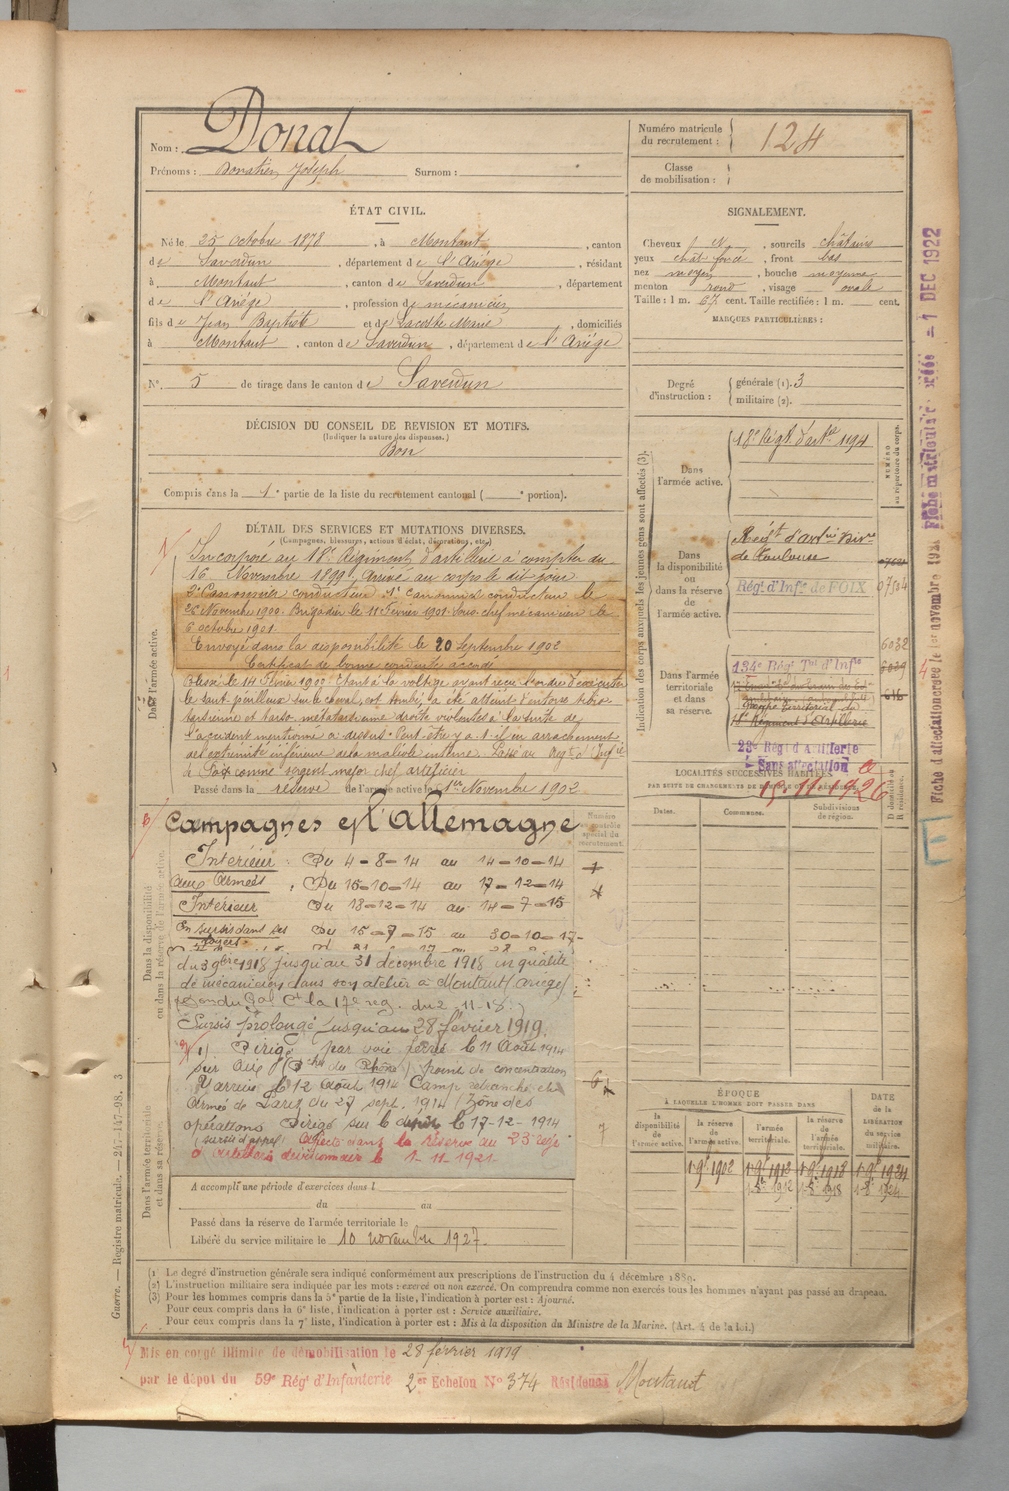 Nom : Donat
Prénoms : Donatien Joseph Surnom :
Numéro matricule du recrutement : 124
Classe de mobilisation :
ÉTAT CIVIL.
Né le 25 octobre 1878, à Montaut, canton
de Saverdun, département de l'Ariège, résidant
à Montaut, canton de Saverdun, département
de l'Ariège, profession de mécanicien
fils de Jean Baptiste et de Lacoste Marie, domiciliés
à Montaut, canton de Saverdun, département de l'Ariège
N° 5 de tirage dans le canton de Saverdun
SIGNALEMENT.
Cheveux N., sourcils châtains
yeux chât foncé, front bas
nez moyen, bouche moyenne
menton rond, visage ovale
Taille : 1 m. 67 cent. Taille rectifiée : 1 m. cent.
MARQUES PARTICULIÈRES :
Degré d'instruction : générale (1). 3
militaire (2).
DÉCISION DU CONSEIL DE REVISION ET MOTIFS.
(Indiquer la nature des dispenses.)
Bon
Compris dans la 1e partie de la liste du recrutement cantonal ( e portion).
DÉTAIL DES SERVICES ET MUTATIONS DIVERSES.
(Campagnes, blessures, actions d'éclat, décorations, etc.)
Incorporé au 18e Régiment d'artillerie à compter du
16 Novembre 1899, arrivé au corps le dit jour
2e Canonnier conducteur. 1e Canonnier conducteur le
Novembre 1900. Brigadier le 11 Février 1901. Sous-chef mécanicien le
6 octobre 1901.
Envoyé dans la disponibilité le 20 Septembre 1902
Certificat de bonne conduite accordé
Blessé le 14 Février 1900. Etant à la voltige ayant reçu l'ordre d'exécuter
le saut périlleux sur le cheval, est tombé, a été atteint d'entorse tibio-
tarsienne et tarso-métatarsienne droite violentes à la suite de
l'accident mentionné ci dessus. Peut-être y a-t-il eu arrachement
des extrémité inférieure de la malléole interne. Passé au Regt d'Infie
de Foix comme sergent major chef artificier
Passé dans la réserve de l'armée active le 1er Novembre 1902
Campagnes c/ l'Allemagne
Intérieur : Du 4-8-14 au 14-10-14
aux Armées : Du 15-10-14 au 17-12-14
Intérieur Du 18-12-14 au 14-7-15
En sursis dans ses foyers Du 15-7-15 au 30-10-17
du 3 9bre 1918 jusqu'au 31 décembre 1918 en qualité
de mécanicien dans son atelier à Montaut (Ariège)
Gal Ct la 17e reg. du 2-11-18
Sursis prolongé jusqu'au 28 février 1919.
Dirigé par voie ferrée le 11 Août 1914
sur Aix (Bches du Rhône) point de concentration
Y arrive le 12 Août 1914 Camp retranché et
Armée de Paris du 27 sept. 1914 (Zône des
opérations Dirigé sur le dépôt le 17-12-1914
Affecté dans la réserve au 23e rég.
d'artillerie divisionnaire le 1-11-1921
A accompli une période d'exercices dans l
du au
Passé dans la réserve de l'armée territoriale le
Libéré du service militaire le 10 novembre 1927.
Dans l'armée active.
Dans la disponibilité ou dans la réserve de l'armée active.
Dans l'armée territoriale et dans sa réserve.
Numéro au contrôle spécial du recrutement.
Indication des corps auxquels les jeunes gens sont affectés (3).
Dans l'armée active. 18e Régt d'artie 1194
NUMÉRO au répertoire du corps.
Dans la disponibilité ou dans la réserve de l'armée active.
Régt d'artie
de Toulouse
Régt d'Infie de FOIX 07504
Dans l'armée territoriale et dans sa réserve.
6032
134e Régt Tal d'Infie
Groupe Territorial du
18e Régiment d'Artillerie
23e Régt d'Artillerie
Sans affectation
LOCALITÉS SUCCESSIVES HABITÉES
PAR SUITE DE CHANGEMENTS DE DOMICILE OU DE RÉSIDENCE.
15.11.1926
Dates. Communes. Subdivisions de région. D domicile ou R résidence.
ÉPOQUE
À LAQUELLE L'HOMME DOIT PASSER DANS
DATE de la LIBÉRATION du service militaire.
la disponibilité de l'armée active. la réserve de l'armée active. l'armée territoriale. la réserve de l'armée territoriale.
1 9e 1902 1 9e 1912 1 9e 1918 1 9e 1924
1912 1918 1924
(1) Le degré d'instruction générale sera indiqué conformément aux prescriptions de l'instruction du 4 décembre 1889.
(2) L'instruction militaire sera indiquée par les mots : exercé ou non exercé. On comprendra comme non exercés tous les hommes n'ayant pas passé au drapeau.
(3) Pour les hommes compris dans la 5e partie de la liste, l'indication à porter est : Ajourné.
Pour ceux compris dans la 6e liste, l'indication à porter est : Service auxiliaire.
Pour ceux compris dans la 7e liste, l'indication à porter est : Mis à la disposition du Ministre de la Marine. (Art. 4 de la loi.)
Mis en congé illimité de démobilisation le 28 février 1919
par le dépôt du 59e Régt d'Infanterie 2er Echelon N° 374 Résidence Montaut
Guerre. — Registre matricule. — 247-147-98. 3
Fiche d'affectation créée le 1er novembre 1921 Fiche matriculaire créée - 1 DEC 1922